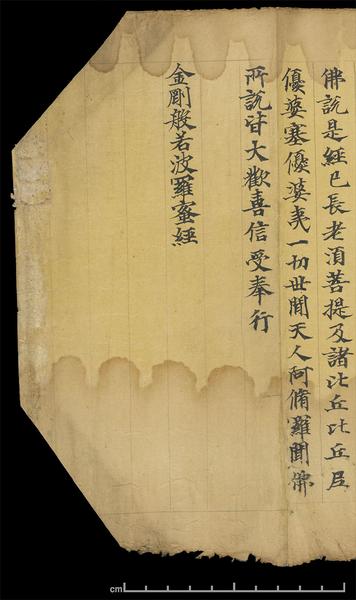 佛說是經已長老湏菩提及諸比丘比丘尼
優婆塞優婆夷一切世間天人阿脩羅聞佛
所說皆大歡喜信受奉行
金剛般若波羅蜜經
cm